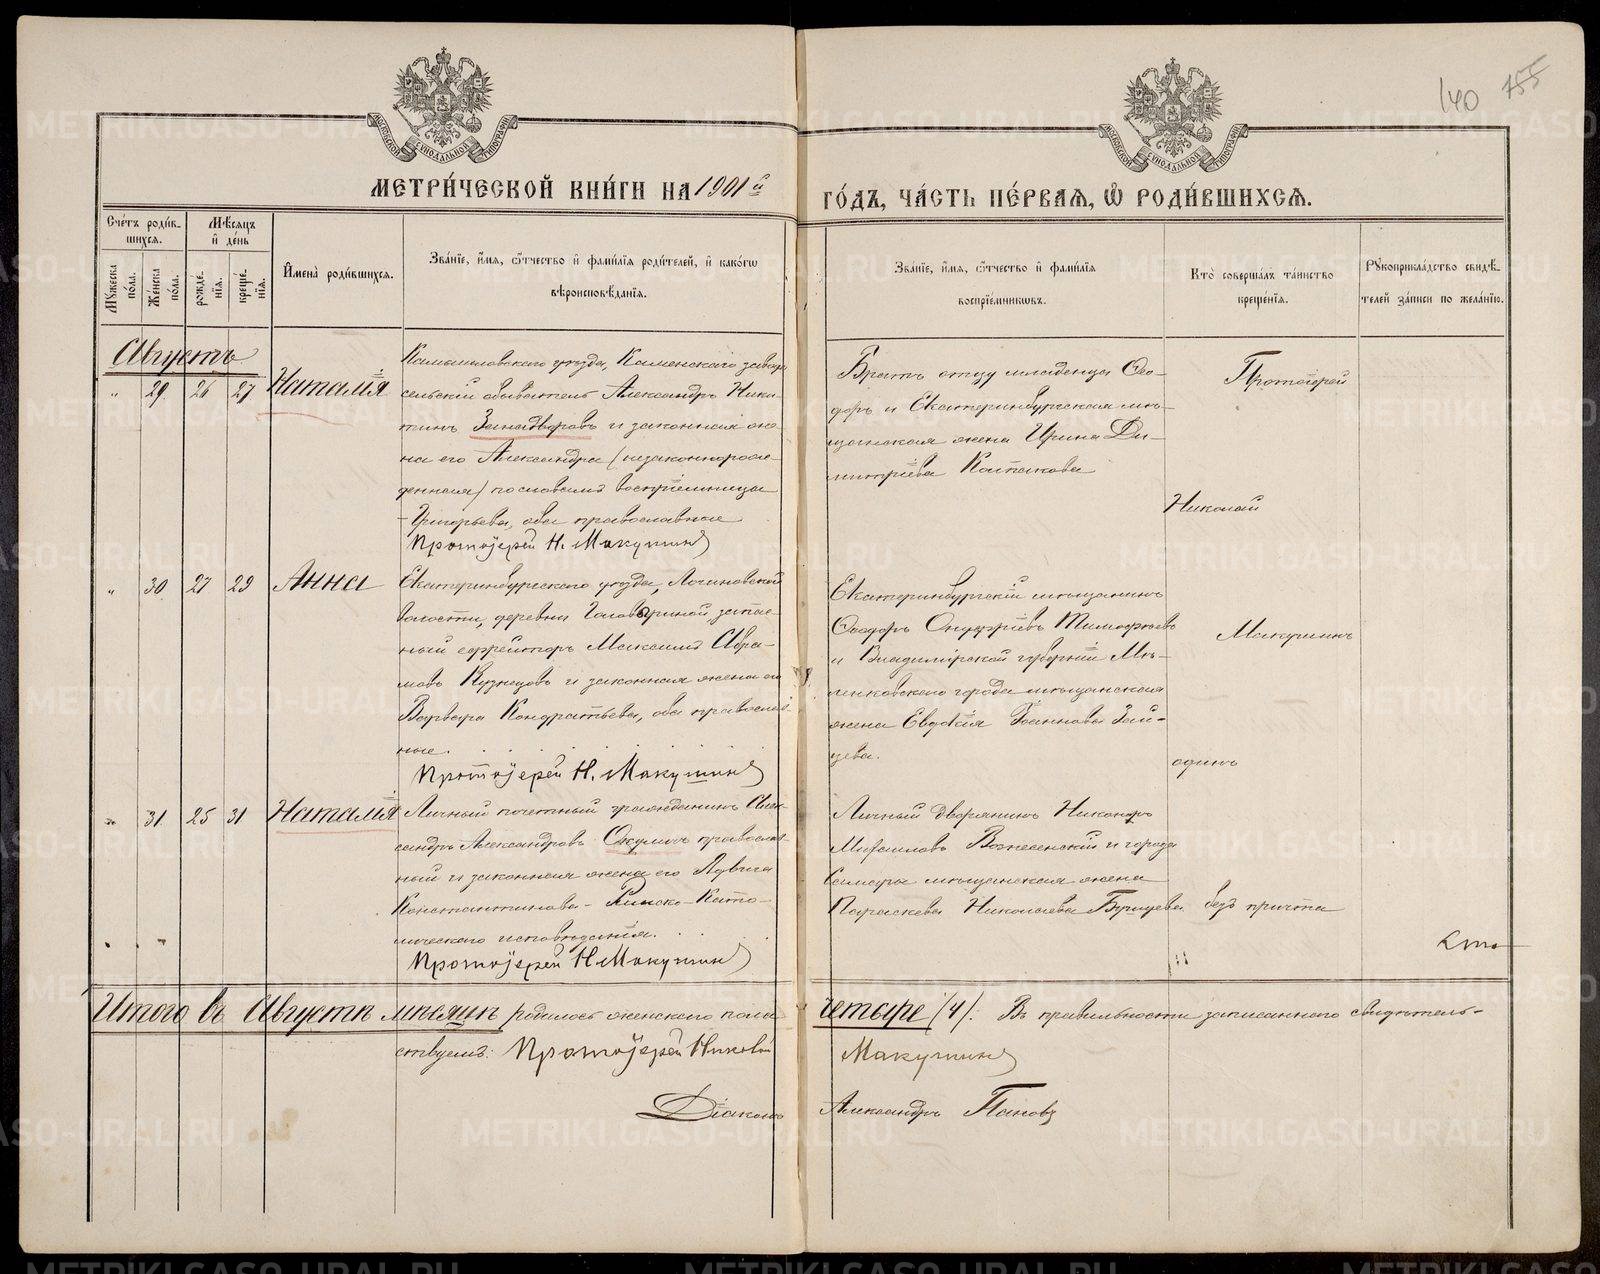 140 755
МЕТРИ́ЧЕСКОЙ КНИ́ГИ НА 1901й ГО́ДЪ, ЧА́СТЬ ПЕ́РВАѦ, Ѡ РОДИ́ВШИХСѦ.
Сче́тъ роди́в-
шихсѧ.
Мѣ́сѧцъ
и҆ де́нь
Мꙋ́жеска по́ла.
Же́нска по́ла.
рожде́нїѧ.
креще́нїѧ.
И҆мена̀ роди́вшихсѧ.
Зва́нїе, и҆́мѧ, ѻ҆́тчество и҆ фами́лїѧ роди́телей, и҆ како́гѡ
вѣроисповѣ́данїѧ.
Зва́нїе, и҆́мѧ, ѻ҆́тчество и҆ фами́лїѧ
воспрїе́мникѡвъ.
Кто̀ соверша́лъ та́инство
креще́нїѧ.
Рꙋкоприкла́дство свидѣ́-
телей за́писи по жела́нїю.
Августъ
" 29 26 27 Наталія
Камышловскаго уѣзда, Каменскаго завода
сельскій обыватель Александръ Ники-
тинъ Занадворовъ и законная же-
на его Александра (незаконнорож-
денная) по словамъ воспріемницы
Григорьева, оба православные
Протоіерей Н. Макушинъ
Братъ отцу младенца Ѳео-
доръ и Екатеринбургская мѣ-
щанская жена Ирина Ди-
митріева Колпакова
Протоіерей
Николай
" 30 27 29 Анна
Екатеринбургскаго уѣзда, Логиновской
волости, деревни Головыриной, запас-
ный ефрейторъ Максимъ Абра-
мовъ Кузнецовъ и законная жена его
Варвара Кондратьева, оба православ-
ные.
Протоіерей Н. Макушинъ
Екатеринбургскій мѣщанинъ
Ѳеодоръ Онуфріевъ Тимофѣевъ
и Владимірской губерніи Ме-
ленковскаго города мѣщанская
жена Евдокія Іоаннова Зай-
цева.
Макушинъ
одинъ
" 31 25 31 Наталія
Личный почетный гражданинъ Алек-
сандръ Александровъ Окуловъ православ-
ный и законная жена его Ядвига
Константинова - Римско-Като-
лическаго исповѣданія.
Протоіерей Н. Макушинъ
Личный дворянинъ Никаноръ
Михаиловъ Вознесенскій и города
Самары мѣщанская жена
Параскева Николаева Бунцева.
безъ причта
Итого въ Августѣ мѣсяцѣ родилось женскаго пола четыре (4). Въ правильности записаннаго свидѣтель-
ствуемъ: Протоіерей Николай Макушинъ
Діаконъ Александръ Пановъ
METRIKI.GASO-URAL.RU